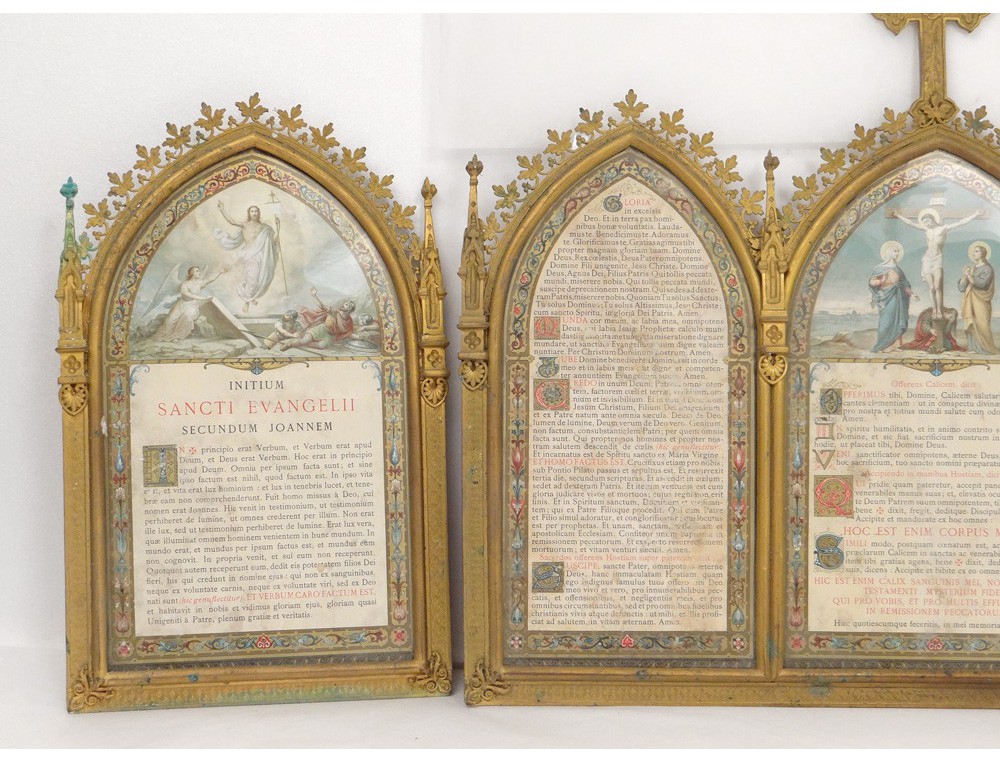 INITIUM
SANCTI EVANGELII
SECUNDUM JOANNEM
IN ✠ principio erat Verbum, et Verbum erat apud
Deum, et Deus erat Verbum. Hoc erat in principio
apud Deum. Omnia per ipsum facta sunt; et sine
ipso factum est nihil, quod factum est. In ipso vita
erat, et vita erat lux hominum: et lux in tenebris lucet, et tene-
bræ eam non comprehenderunt. Fuit homo missus à Deo, cui
nomen erat Joannes. Hic venit in testimonium, ut testimonium
perhiberet de lumine, ut omnes crederent per illum. Non erat
ille lux, sed ut testimonium perhiberet de lumine. Erat lux vera,
quæ illuminat omnem hominem venientem in hunc mundum. In
mundo erat, et mundus per ipsum factus est, et mundus eum
non cognovit. In propria venit, et sui eum non receperunt.
Quotquot autem receperunt eum, dedit eis potestatem filios Dei
fieri, his qui credunt in nomine ejus: qui non ex sanguinibus,
neque ex voluntate carnis, neque ex voluntate viri, sed ex Deo
nati sunt (hic genuflectitur). ET VERBUM CARO FACTUM EST,
et habitavit in nobis et vidimus gloriam ejus, gloriam quasi
Unigeniti à Patre, plenum gratiæ et veritatis.
GLORIA
in excelsis
Deo. Et in terra pax homi-
nibus bonæ voluntatis. Lauda-
mus te. Benedicimus te. Adoramus
te. Glorificamus te. Gratias agimus tibi
propter magnam gloriam tuam. Domine
Deus, Rex cœlestis, Deus Pater omnipotens.
Domine Fili unigenite, Jesu Christe. Domine
Deus, Agnus Dei, Filius Patris. Qui tollis peccata
mundi, miserere nobis. Qui tollis peccata mundi,
suscipe deprecationem nostram. Qui sedes ad dexte-
ram Patris, miserere nobis. Quoniam Tu solus Sanctus,
Tu solus Dominus, Tu solus Altissimus, Jesu Christe
cum sancto Spiritu, in gloriâ Dei Patris. Amen.
MUNDA cor meum, ac labia mea, omnipotens
Deus, qui labia Isaiæ Prophetæ calculo mun-
dare, ut sanctum Evangelium tuum digne valeam
nuntiare. Per Christum Dominum nostrum. Amen.
JUBE Domine benedicere. Dominus sit in corde
meo et in labiis meis: ut digne et competen-
ter annuntiem Evangelium suum. Amen.
CREDO in unum Deum, Patrem omnipoten-
tem, factorem cœli et terræ, visibilium om-
nium et invisibilium. Et in unum Dominum
Jesum Christum, Filium Dei unigenitum:
et ex Patre natum ante omnia sæcula. Deum de Deo,
lumen de lumine, Deum verum de Deo vero. Genitum,
non factum, consubstantialem Patri; per quem omnia
facta sunt. Qui propter nos homines et propter nos-
tram salutem descendit de cœlis
Et incarnatus est de Spiritu sancto ex Maria Virgine,
ET HOMO FACTUS EST. Crucifixus etiam pro nobis;
sub Pontio Pilato passus et sepultus est. Et resurrexit
tertia die, secundum scripturas. Et ascendit in cœlum:
sedet ad dexteram Patris. Et iterum venturus est cum
gloria judicare vivos et mortuos; cujus regni non erit
finis. Et in Spiritum sanctum, Dominum et vivifican-
tem; qui ex Patre Filioque procedit. Qui cum Patre
et Filio simul adoratur, et conglorificatur; qui locutus
est per prophetas. Et unam, sanctam, catholicam et
apostolicam Ecclesiam. Confiteor unum baptisma in
remissionem peccatorum. Et exspecto resurrectionem
mortuorum; et vitam venturi sæculi. Amen.
Sacerdos offerens Hostiam super patenam
SUSCIPE, sancte Pater, omnipotens æterne
Deus, hanc immaculatam Hostiam quam
ego indignus famulus tuus offero tibi Deo
meo vivo et vero, pro innumerabilibus pec-
catis, et offensionibus, et negligentiis meis, et pro
omnibus circumstantibus, sed et pro omnibus fidelibus
christianis vivis atque defunctis: ut mihi, et illis profi-
ciat ad salutem in vitam æternam. Amen.
Offerens Calicem, dicit
OFFERIMUS tibi, Domine, Calicem salutar
cantes clementiam: ut in conspectu divinæ
pro nostra et totius mundi salute cum odo
Amen.
IN spiritu humilitatis, et in animo contrito s
Domine, et sic fiat sacrificium nostrum in
hodie, ut placeat tibi, Domine Deus.
VENI, sanctificator omnipotens, æterne Deus,
hoc sacrificium, tuo sancto nomini præpara
Accipiendo in manibus Hostiam, dicit
QUI pridie quam pateretur, accepit pane
venerabiles manus suas; et, elevatis oc
te Deum Patrem suum omnipotentem,
bene ✠ dixit, fregit, deditque Discipu
Accipite et manducate ex hoc omnes:
HOC EST ENIM CORPUS M
SIMILI modo, postquam cœnatum est, ac
præclarum Calicem in sanctas ac venerab
item tibi gratias agens, bene ✠ dixit, ded
suis, dicens: Accipite et bibite ex eo omn
HIC EST ENIM CALIX SANGUINIS MEI, NO
TESTAMENTI MYSTERIUM FIDE
QUI PRO VOBIS, ET PRO MULTIS EFF
IN REMISSIONEM PECCATORU
Hæc quotiescumque feceritis, in mei memoria